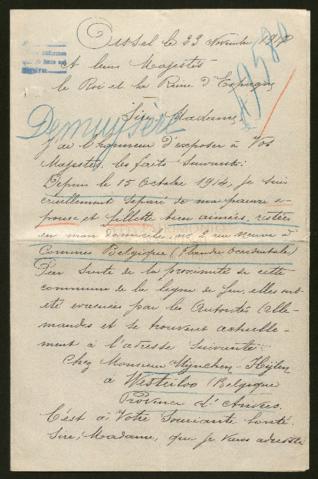 Oissel le 23 Novembre 1917
A leurs Majestés
le Roi et la Reine d'Espagne
Sire, Madame,
Demuysère
J'ai l'honneur d'exposer à Vos
Majestés, les faits suivants:
Depuis le 15 Octobre 1914, je suis
cruellement séparé de ma pauvre é-
pouse et fillette bien aimées, restées
en mon domicile, no 2 rue neuve à
Comines Belgique (Flandre Occidentale)
Par suite de la proximité de cette
commune de la ligne de feu, elles ont
été evacuées par les Autorités Alle-
mandes et se trouvent actuelle-
ment à l'adresse suivante:
Chez Monsieur
à Westerloo (Belgique
Province d'Anvers.
C'est à Votre Souriante bonté,
Sire, Madame, que je viens adresser